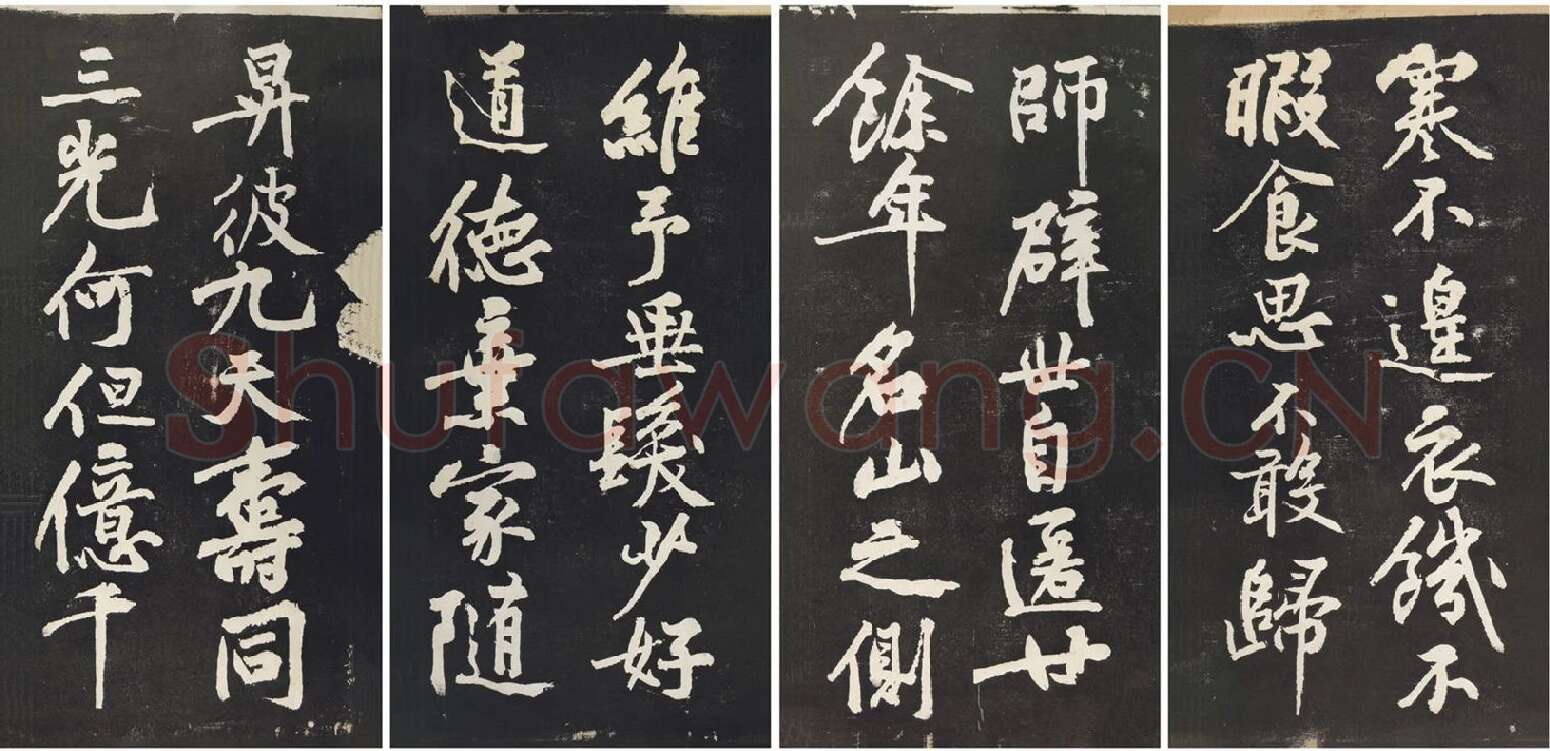 昇彼九天壽同
三光何但億千
維予垂髮少好
道德棄家隨
師辟世自匿廿
餘年名山之側
寒不遑衣饑不
暇食思不敢歸
Shufawang.CN